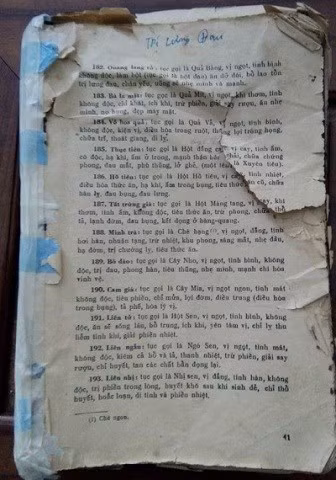 182. Quang lang tử: tục gọi là Quả Bàng, vị ngọt, tính bình
không độc,
trị lưng đau, chân yếu, uống sẽ nhẹ mình và mạnh.
183. Ba la mật: tục gọi là Quả Mít, vị ngọt, khí thơm, tính
không độc, chỉ khát, ích khí, trừ phiền, giải say rượu, ăn nhẹ
mình, no bụng, đẹp mày mặt.
184. Vô hoa quả: tục gọi là Quả Vả, vị ngọt, tính bình,
không độc, kiện vị, điều hòa trung tuột, thông lợi tràng hung,
chữa trĩ, thoát giang, đi lỵ.
185. Thục tiêu: tục gọi là Hột đắng cay, vị cay, tính ấm,
có độc, hạ khí, ấm ở trong, mạnh thận tiêu chữa chứng
phong, đau mắt, phù thũng, lở ghẻ. (một tên là Xuyên tiêu).
186. Hồ tiêu: tục gọi là Hột Hồ tiêu, vị cay, tính nhiệt,
điều hòa thức ăn, hạ khí, ấm trong bụng, tiêu thức ăn cũ, chữa
hàn lỵ, đau bụng, đau lưng.
187. Tất trừng già: tục gọi là Hột Màng tang, vị cay, khí
thơm, tính ấm, không độc, tiêu thức ăn, trừ phong, chữa thổ
tả, lạnh đờm, đau bụng, kết đọng ở bàng-quang.
188. Minh trà: tục gọi là Chè hạng (1), vị ngọt, đắng, tính
hơi hàn, nhuần tạng, trừ nhiệt, khu phong, sáng mắt, nhẹ đầu,
hạ đờm, trị chướng lỵ, tiêu thức ăn.
189. Bồ đào: tục gọi là Cây Nho, vị ngọt, tính bình, không
độc, trị đau, phong hàn, tiêu thũng, nhẹ mình, mạnh chí hòa
vinh vệ.
190. Cam giá: tục gọi là Cây Mía, vị ngọt ngon, tính mát
không độc, tiêu phiền, chỉ mửa, lợi đờm, điều trung (điều hòa
trong bụng), tả phế, hòa lý vị.
191. Liên tử: tục gọi là Hột Sen, vị ngọt, tính bình, không
độc, ăn sẽ sống lâu, bổ trung, ích khí, yên tâm vị, chỉ lỵ thu
hãm tinh khí, giải phiền nhiệt.
192. Liên ngẫu: tục gọi là Ngó Sen, vị ngọt, tính mát,
không độc, kiêm cả bổ và tả, thanh nhiệt, trừ phiền, giải say
rượu, chỉ huyết, tan các chất bẩn đọng lại.
193. Liên nhị: tục gọi là Nhị sen, vị đắng, tính hàn, không
độc, trị phiền trong lòng, huyết khô sau khi sinh đẻ, chỉ thổ
huyết, hoắc loạn, di tinh và phiền nhiệt.
(1) Chè ngon.
41